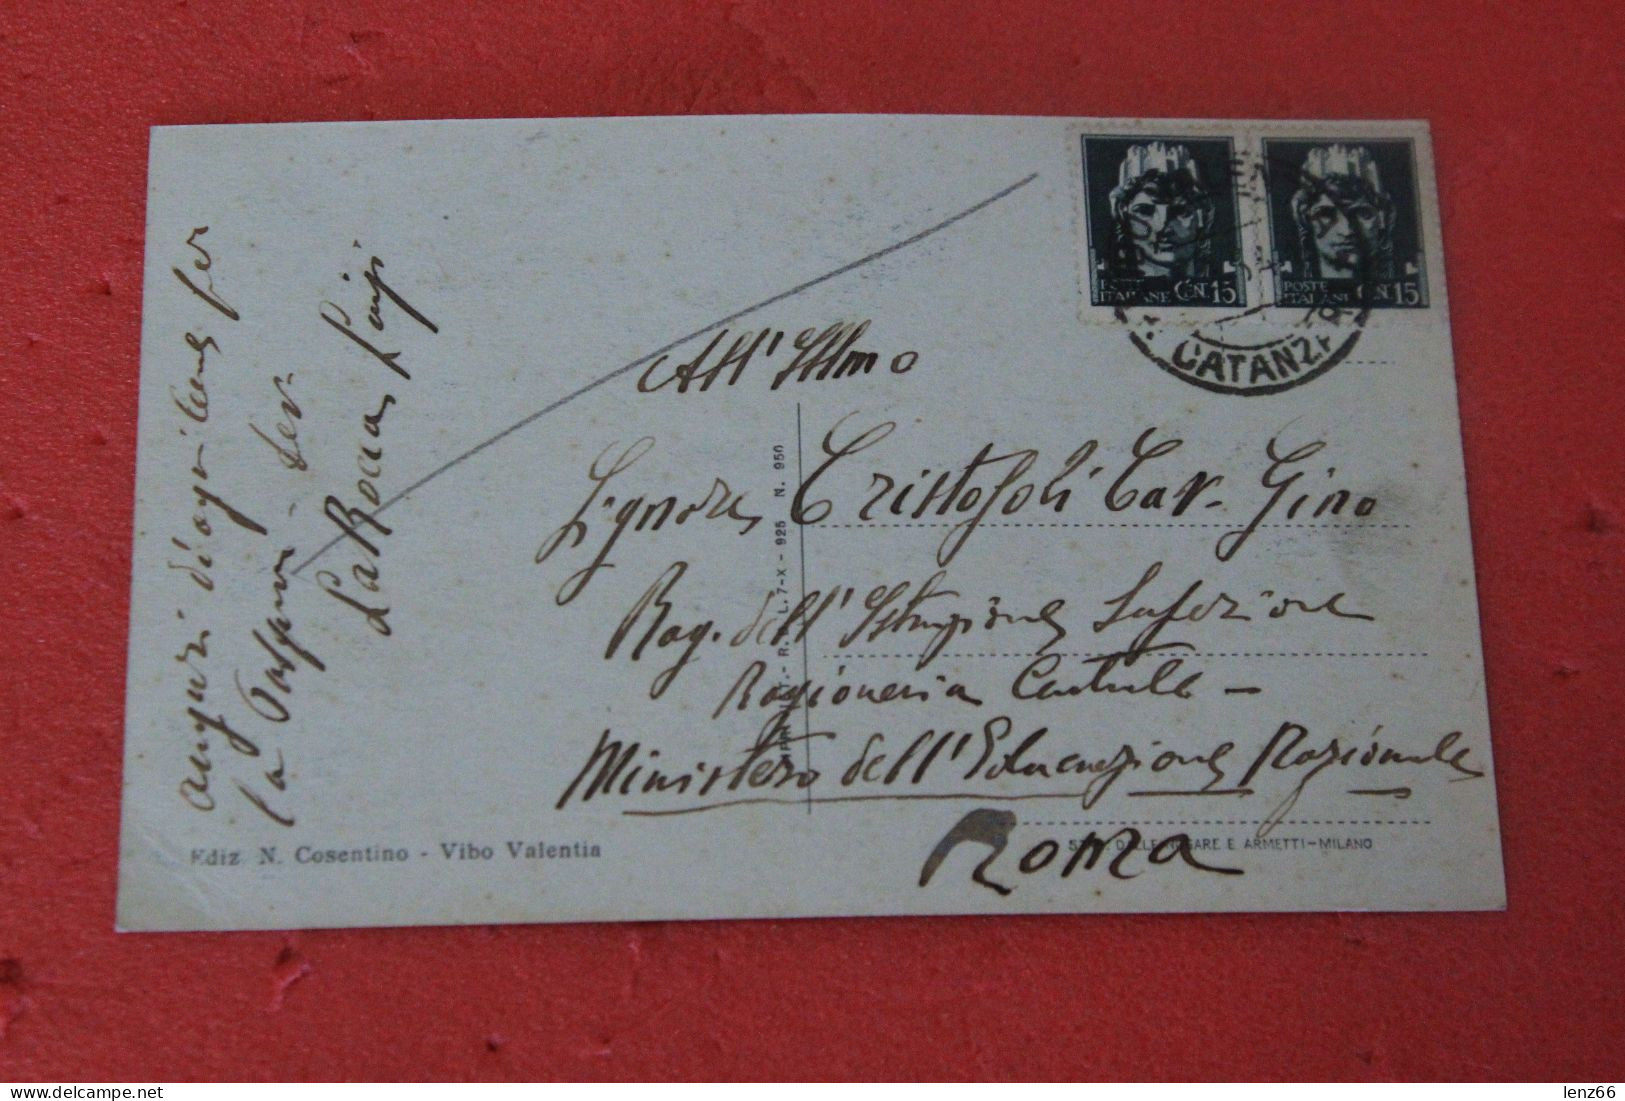 auguri di ogni bene per
la Pasqua - dev.
La Rocca Luigi
All'Illmo
Signore Cristofoli Cav. Gino
Rag. dell'Istruzione Superiore
Ragioneria Centrale -
Ministero dell'Educazione Nazionale
Roma
POSTE ITALIANE CENT. 15
POSTE ITALIANE CENT. 15
CATANZAR
- 925 N. 950
Ediz. N. Cosentino - Vibo Valentia
STAB. DALLE NOGARE E ARMETTI-MILANO
lenz66